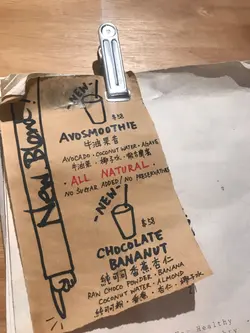 New Blend!
NEW
$58
AVOSMOOTHIE
牛油果香
AVOCADO · COCONUT WATER · AGAVE
牛油果 · 椰子水 · 龍舌蘭蜜
· ALL NATURAL ·
NO SUGAR ADDED / NO PRESERVATIVES
NEW
$58
CHOCOLATE
BANANUT
純可可香蕉杏仁
RAW CHOCO POWDER · BANANA
COCONUT WATER · ALMOND
可可粉 · 香蕉 · 杏仁 · 椰子水
Healthy